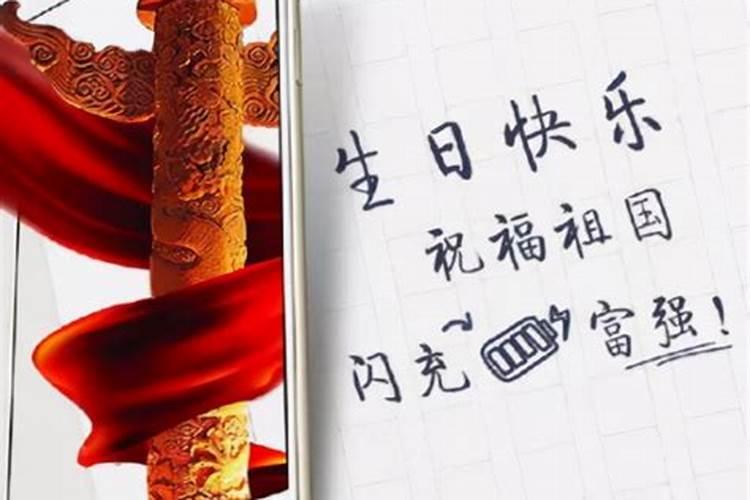 生日快乐
祝福祖国
闪充~富强!